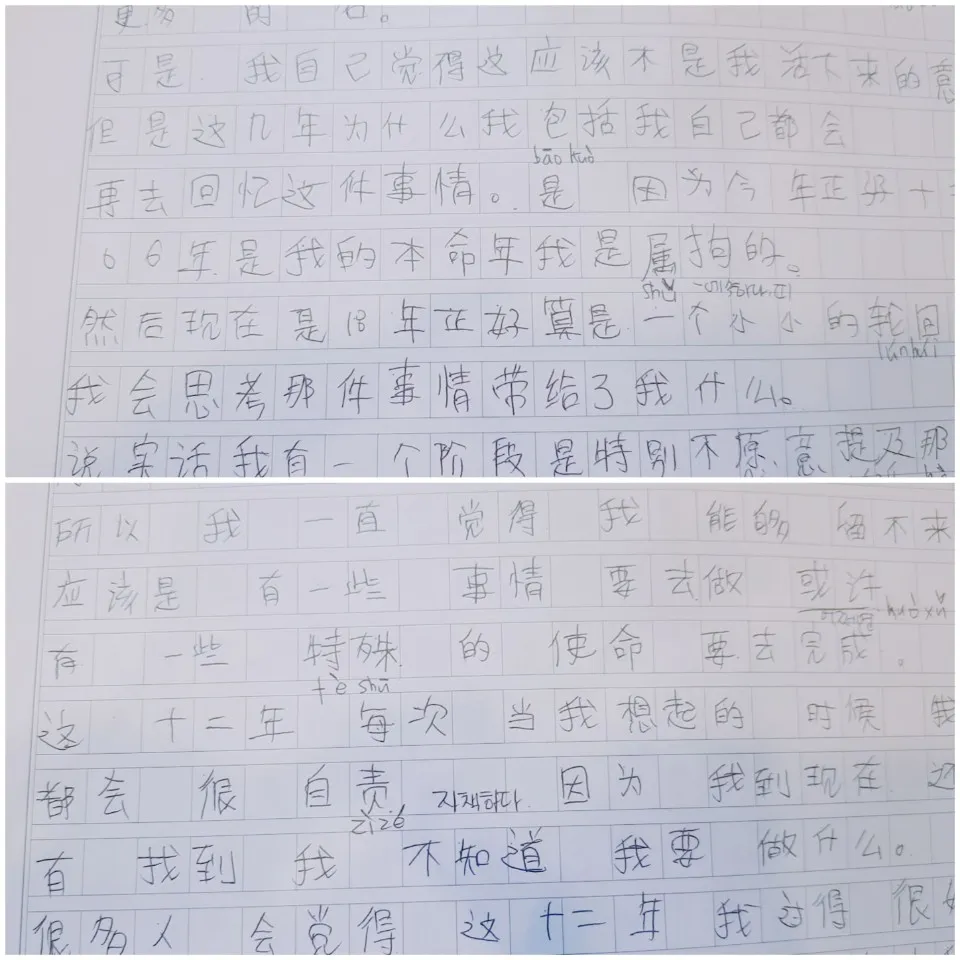 更多
可是 我自己觉得这应该不是我活下来的意
但是这几年为什么我包括我自己都会
bāo kuò
再去回忆这件事情。是 因为今年正好十
06年是我的本命年我是属狗的。
shǔ
然后现在是18年正好算是一个小小的轮回
lúnhuí
我会思考那件事情带给了我什么。
说实话我有一个阶段是特别不愿意提及那
所以 我 一直 觉得 我 能够 留下来
应该是 有一些 事情 要去做 或许
huòxǔ
有 一些 特殊 的 使命 要去完成。
tè shū
这 十二年 每次 当我想起的 时候 我
都会 很 自责 자책하다. 因为 我到现在
zìzé
有 找到 我 不知道 我要 做什么。
很多人 会觉得 这十二年 我过得 很好